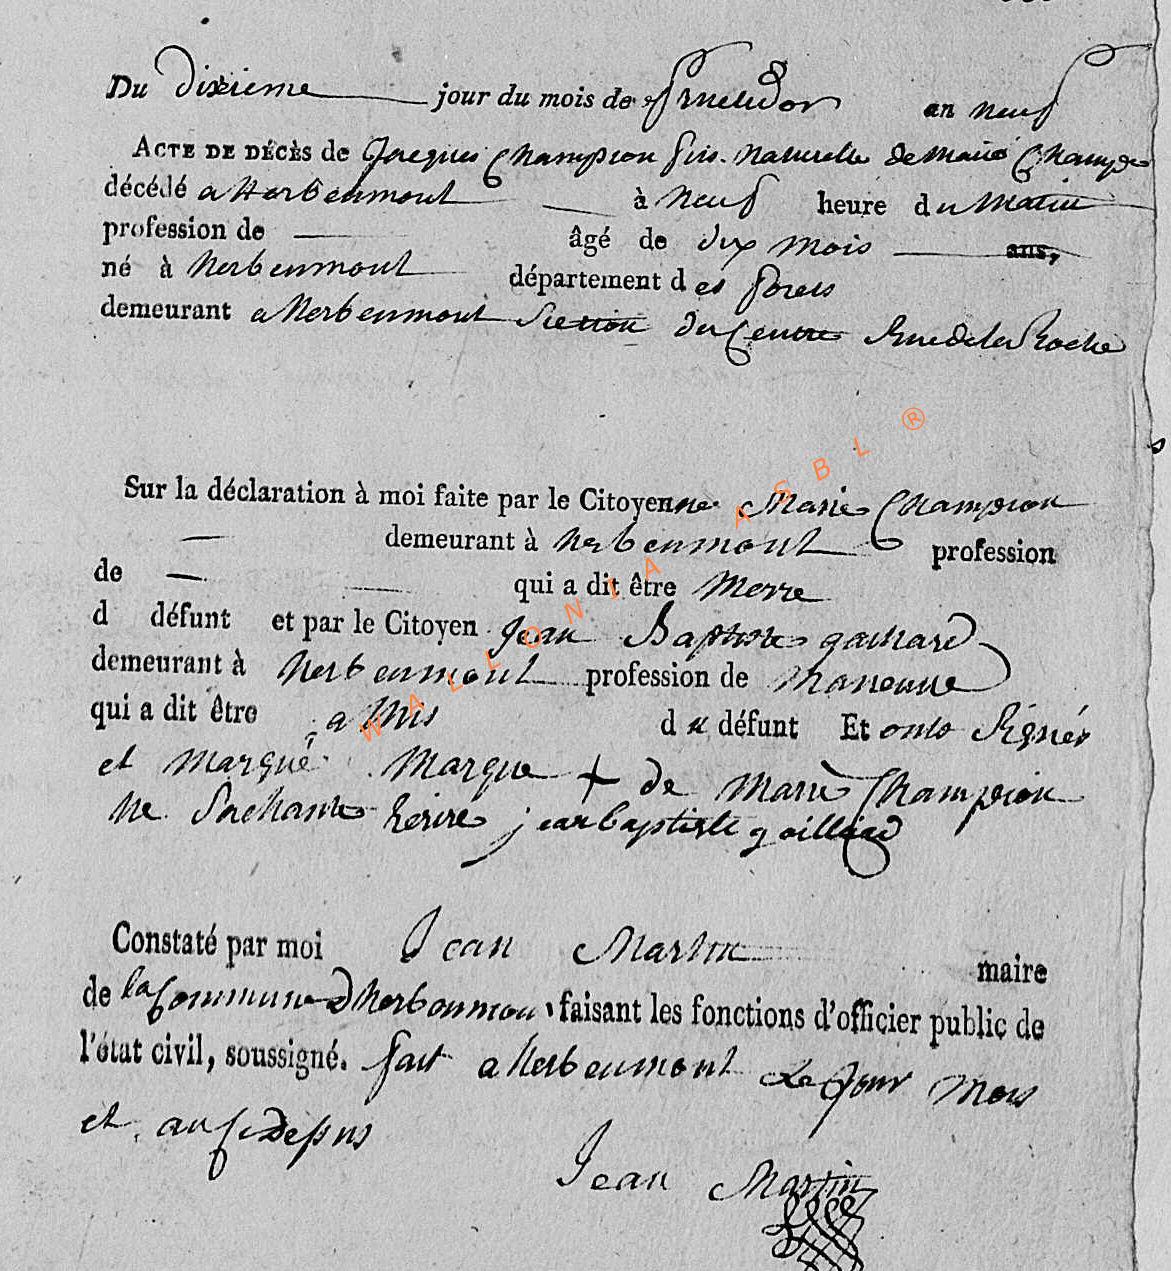 Du dixieme jour du mois de fructidor an neuf
ACTE DE DÉCÈS de Jacques Champion fils naturelle de Marie Champion
décédé a Herbeumont à neuf heure du Matin
profession de âgé de dix mois ans,
né à herbeumont département d es forets
demeurant a Herbeumont Section du Centre Rue de la Roche
Sur la déclaration à moi faite par le Citoyenne Marie Champion
demeurant à herbeumont profession
de qui a dit être Merre
d défunt et par le Citoyen Jean Baptiste gaihard
demeurant à herbeumont profession de Maneuve
qui a dit être amis d u défunt Et onts Signér
et marqué Marque + de Marie Champion
ne Sachante Ecrire jean baptiste goilliard
Constaté par moi Jean Martin maire
de la Commune d'herbeumont, faisant les fonctions d'officier public de
l'état civil, soussigné. fait a herbeumont Le Jour Mois
et an Cidessus
Jean Martin
WALLONIA ASBL ®